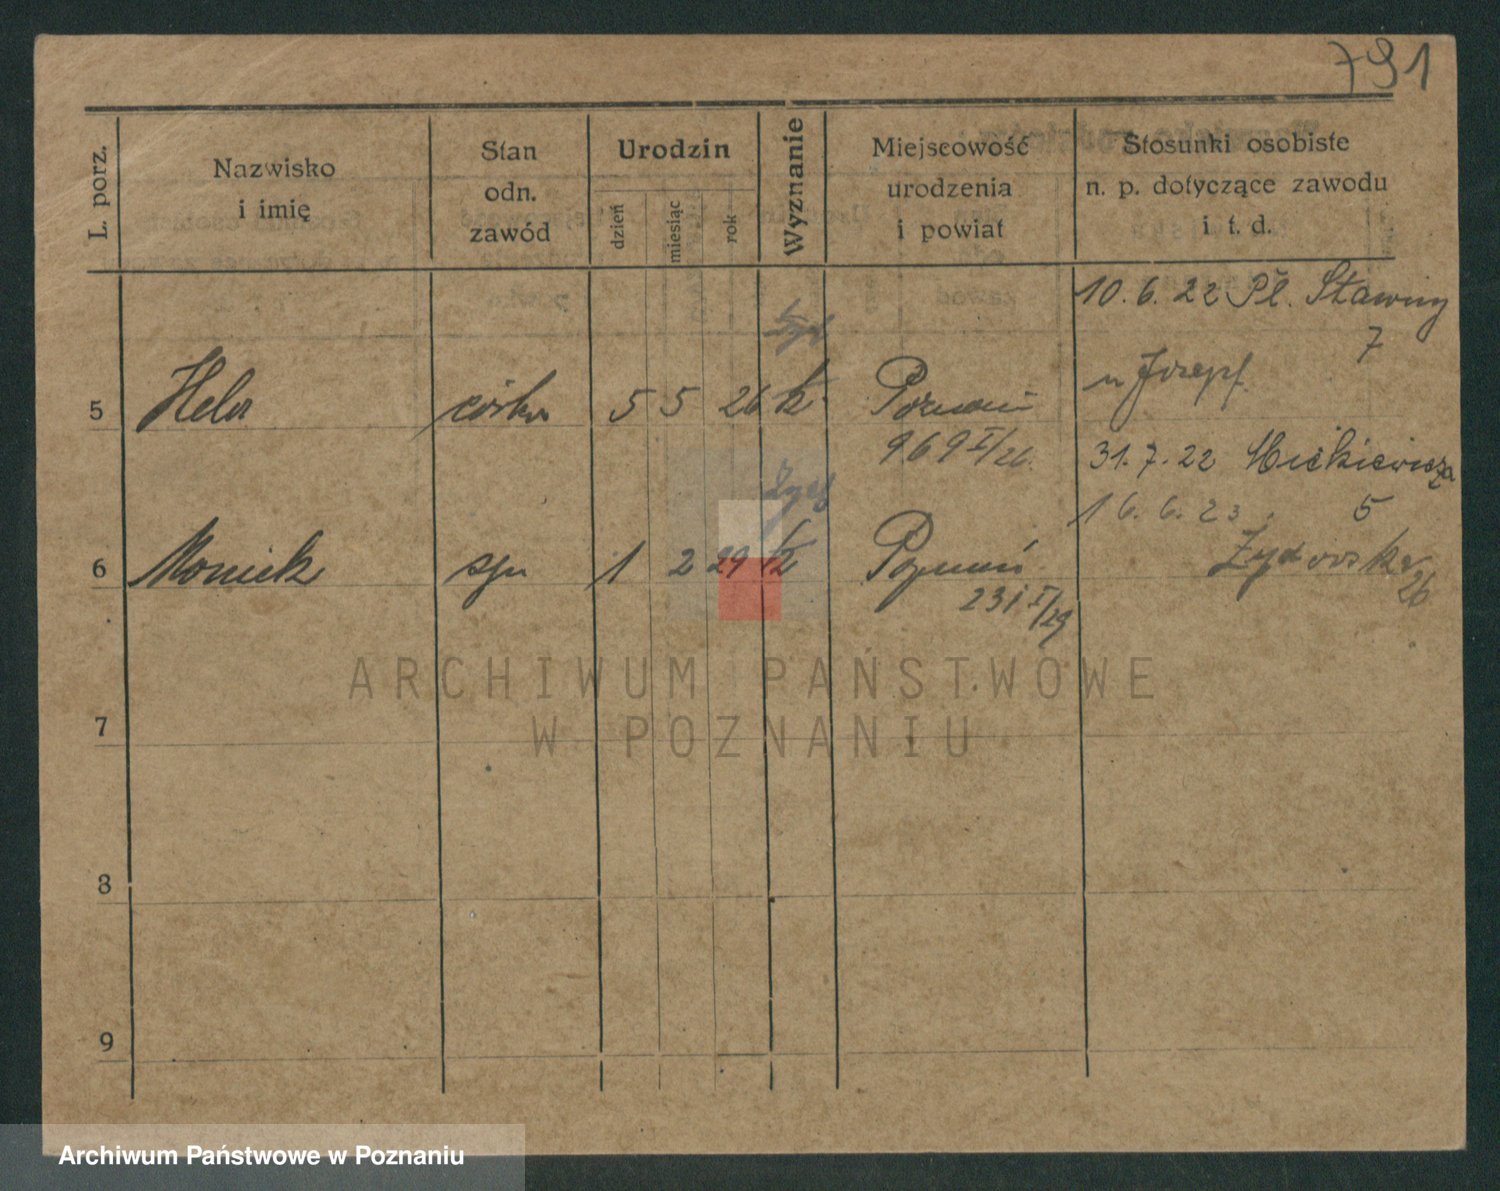 791
L. porz.
Nazwisko
i imię
Stan
odn.
zawód
Urodzin
dzień
miesiąc
rok
Wyznanie
Miejscowość
urodzenia
i powiat
Stosunki osobiste
n. p. dotyczące zawodu
i t. d.
10.6.22 Pl. Stawny
7
5 Hela córka 5 5 26 Poznań
969 I/26.
u Józef
31.7.22 Mickiewicza
16.6.23. 5
6 Moniek syn 1 2 29 Poznań
231 I/29
Żydowska
26
7
8
9
ARCHIWUM PAŃSTWOWE
W POZNANIU
Archiwum Państwowe w Poznaniu